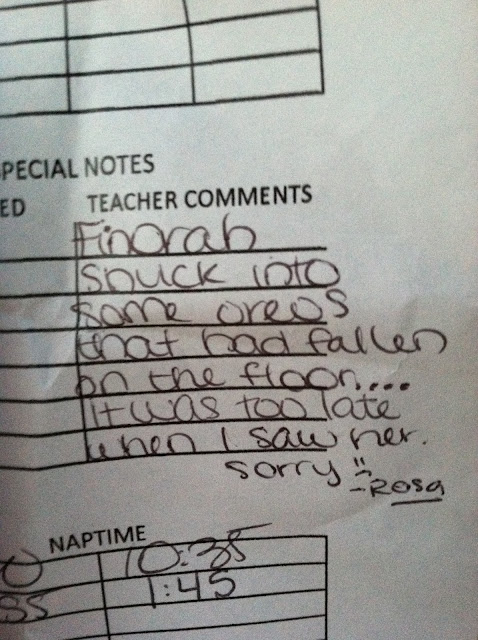 PECIAL NOTES
ED TEACHER COMMENTS
Finorah
snuck into
some oreos
that had fallen
on the floor....
It was too late
when I saw her.
sorry
-Rosa
NAPTIME
10:35
1:45